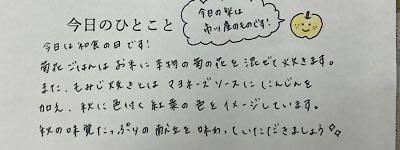 今日のひとこと
今日の梨は
市川産のものです!
今日は和食の日です!
菊花ごはんはお米に本物の菊の花を混ぜて炊きます。
また、もみじ焼きとは マヨネーズソースに にんじんを
加え、秋に色付く紅葉の色をイメージしています。
秋の味覚たっぷりの献立を味わっていただきましょう